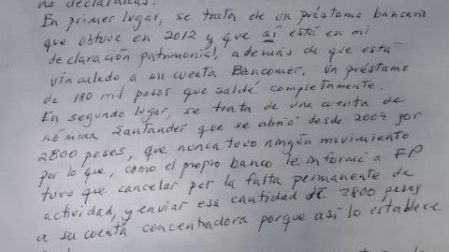 no declaradas.
En primer lugar, se trata de un préstamo bancario
que obtuve en 2012 y que sí está en mi
declaración patrimonial, además de que está
vinculado a mi cuenta Bancomer. Un préstamo
de 180 mil pesos que saldé completamente.
En segundo lugar, se trata de una cuenta de
nómina Santander que se abrió desde 2007 por
2800 pesos, que nunca tuvo ningún movimiento
por lo que, como el propio banco le informó a FP
tuvo que cancelar por la falta permanente de
actividad, y enviar esa cantidad de 2800 pesos
a su cuenta concentradora porque así lo establece